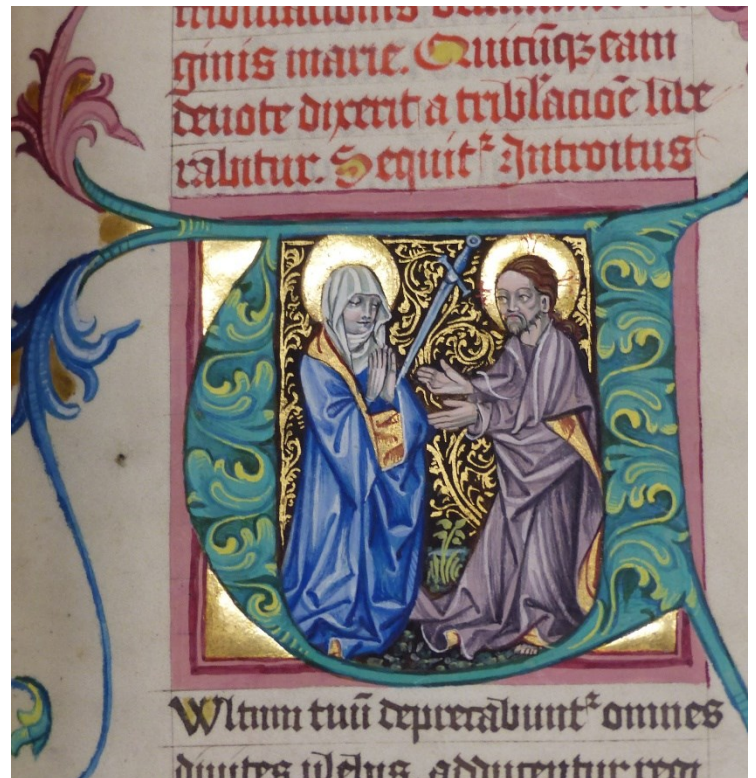 tribulationis
ginis marie. Quicūqꝫ eam
deuote dixerit a tribl'acioē libe
rabitur. Sequitᷣ Introitus
Wltum tuū deprecabuntᷣ omnes
diuites plebis. adducentur regi